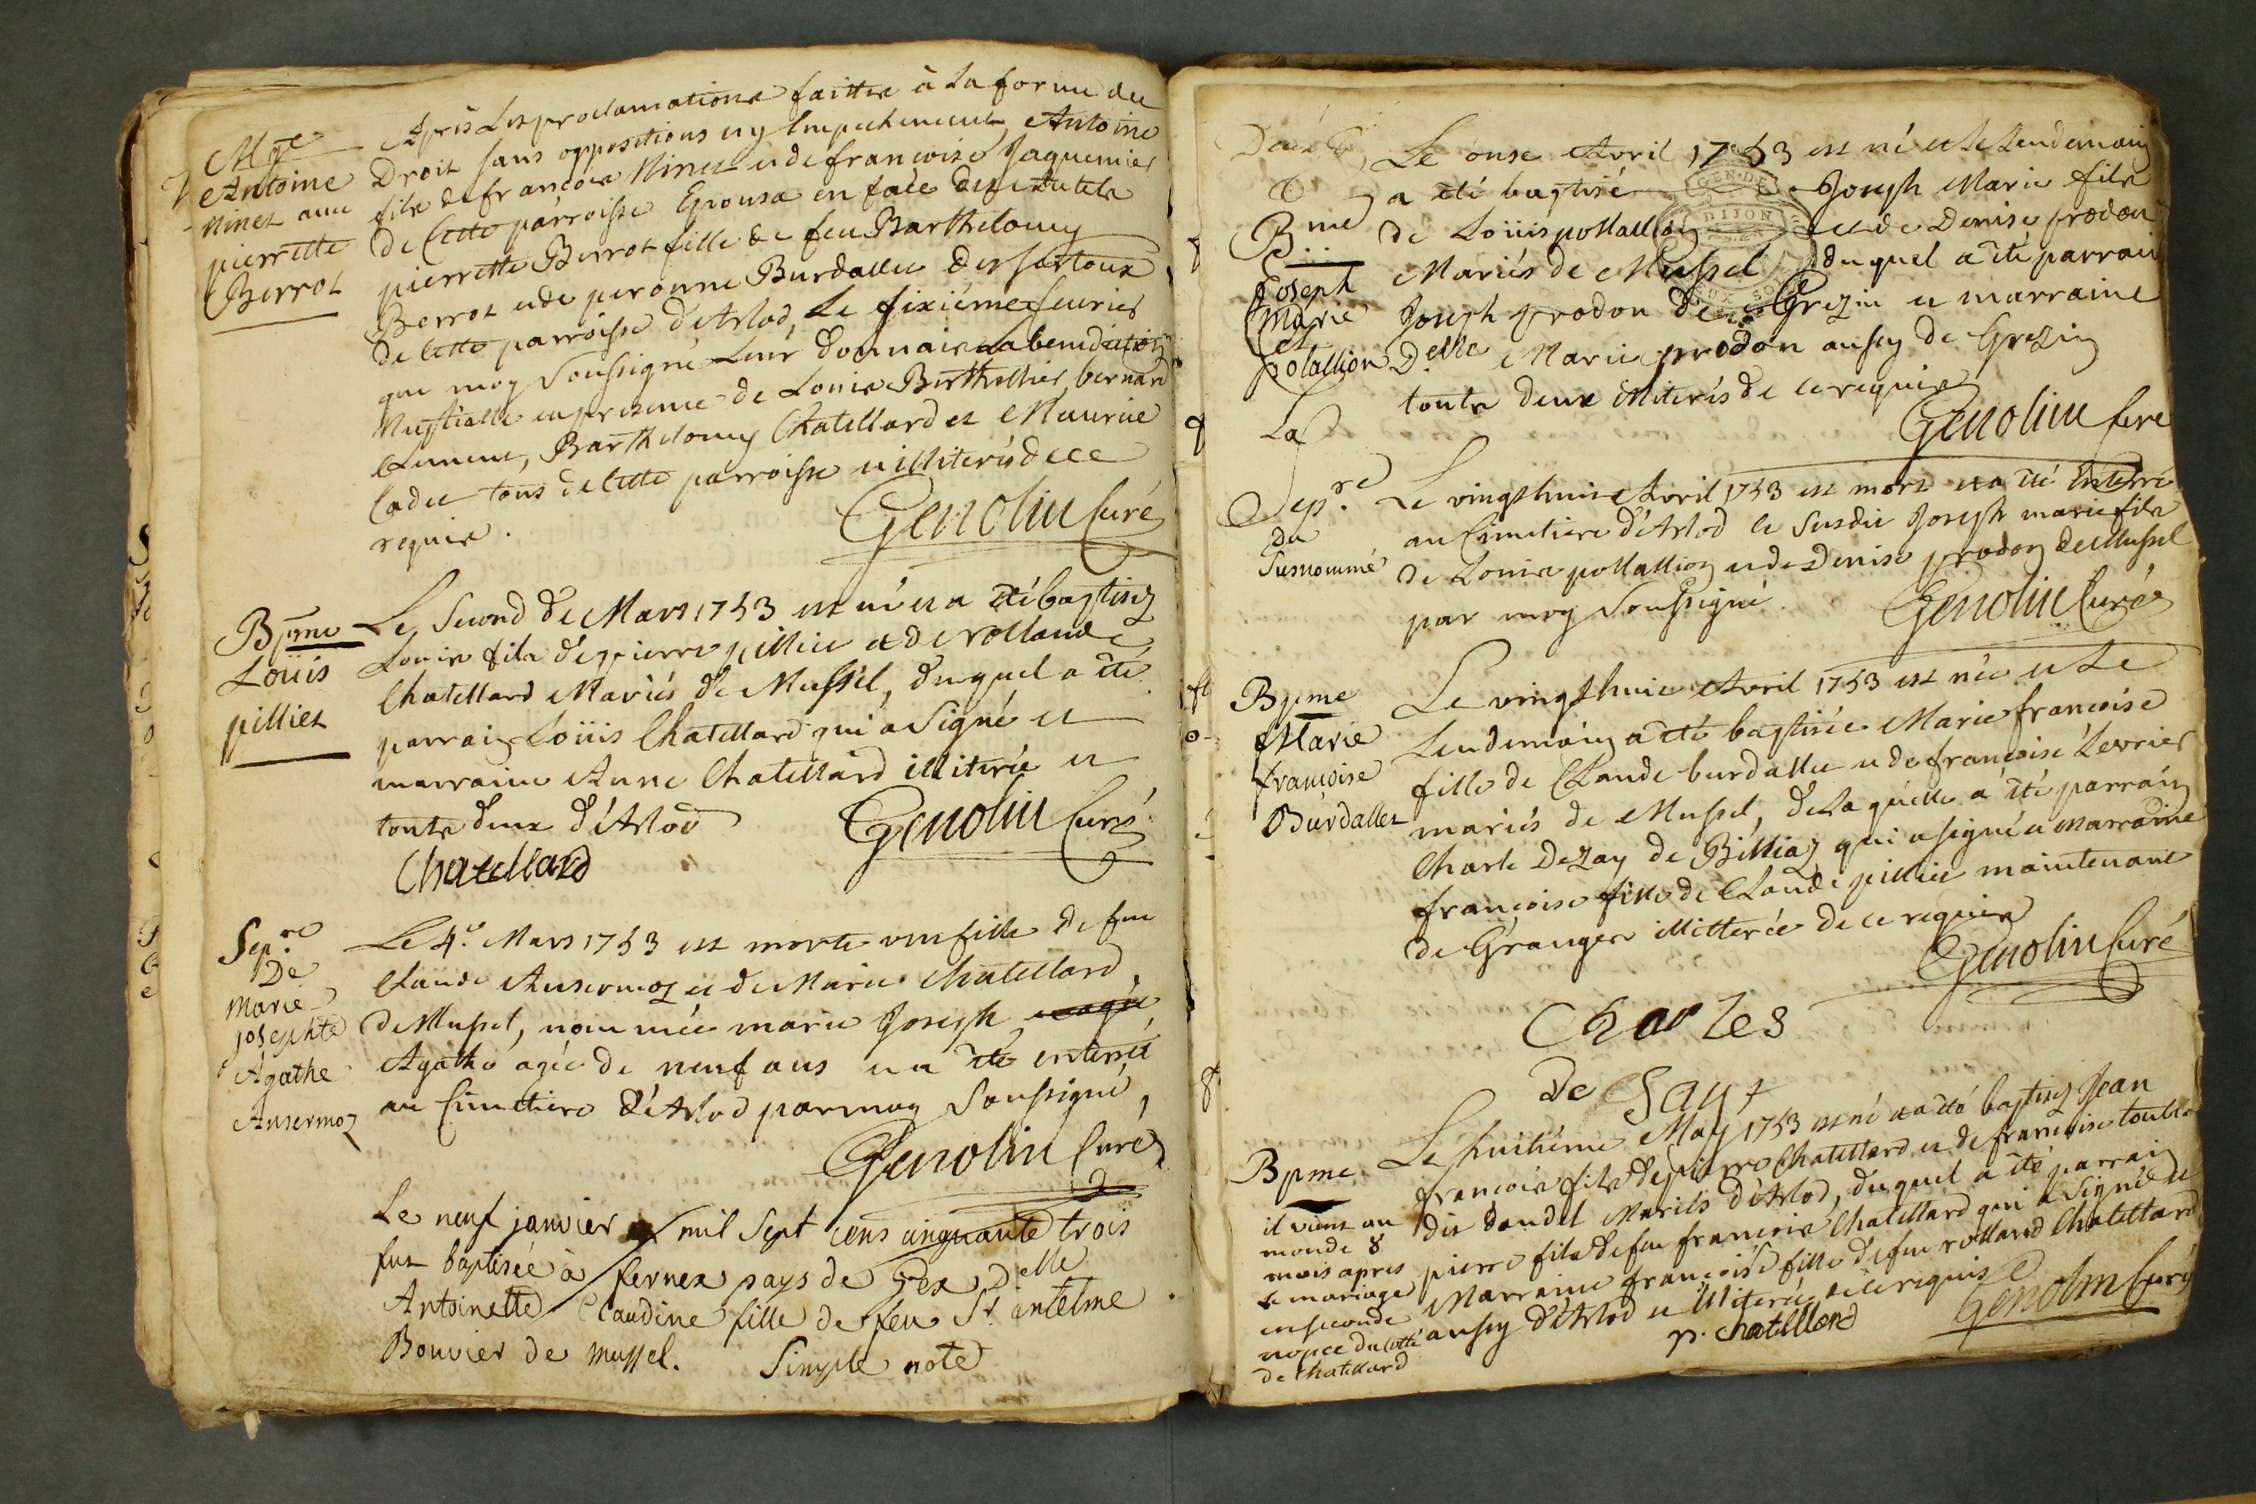 Mge
Antoine
Ninet avec
pierrette
Berrot
Après Les proclamations faittes à La forme du
Droit sans oppositions ny Empechement, Antoine
fils de francois Ninet et de francoise Jaquemier
de Cette parroisse Epousa en face des Autels
pierrette Berrot fille de feu Barthelomy
Berrot et de peronne Burdallet des
de cette parroisse d'Arlod, Le sixiéme feurier
que moy Soussigné Leur donnais La benediction
Nuptialle en presence de Louis Berthellier, bernard
Barthelomy Chatellard et Maurice
Cadet tous de Cette parroisse et illiterés de ce
requis.
Genolin Curé
Bpme
Loüis
pilliet
Le Second de Mars 1753 est né et a été baptisez
Louis fils de pierre pilliet et de rollande
Chatellard Mariés de Mussel, duquel a été
parrain Loüis Chatellard qui a Signé et
marraine Anne Chatellard illiterée et
touts deux d'Arlod
Genolin Curé
Chatellard
Sepre
De
Marie
josephte
Agathe
Ansermoz
Le 4e. Mars 1753 est morte une fille de feu
Claude Ansermoz et de Marie Chatellard
de Mussel, nommée marie Joseph
Agathe agée de neuf ans et a été enterrée
au Cimetiere d'Arlod par moy Soussigné,
Genolin Curé
Le neuf janvier mil Sept cens cinquante trois
fut baptisée à fernex pays de Gex Delle
Antoinette Claudine fille de feu Sr. antelme
Bouvier de mussel. Simple note
Bme
Joseph
Marie
polallion
Le onse Avril 1753 est né et le Lendemain
a été baptisé Joseph Marie fils
de Loüis pollallion et de Denise prodon
Mariés de Mussel duquel a été parrain
Joseph prodon de Grezin et marraine
Delle Marie prodon aussy de Grezin
touts deux illiterés de ce requis
Genolin Curé
GEN. DE
DIJON
DEUX SOLS
Sepre
Du
Susnommé
Le vingthuit Avril 1753 est mort et a été Enterré
au Cimetiere d'Arlod le Susdit Joseph marie fils
de Louis pollallion et de Denise prodon de Mussel
par moy Soussigné.
Genolin Curé
Bpme
Marie
francoise
Burdallet
Le vingthuit Avril 1753 est née et Le
Lendemain a été baptisée Marie francoise
fille de Claude burdallet et de francoise Levrier
mariés de Mussel, de Laquelle a été parrain
Charle Dezay de Billiaz qui a signé et marraine
francoise fille de Claude pilliet maintenant
de Granges illitterée de ce requise
Genolin Curé
Charles
De Say
Bpme
il vient au
monde 8
mois apres
le mariage
en seconde
nopce du cotté
de Chatellard
Le huitiéme May 1753 est né et a été baptisez Jean
francois fils de pierre Chatellard et de francoise
dit doudet Mariés d'Arlod, duquel a été parrain
pierre fils de feu francois Chatellard qui a Signé et
Marraine francoise fille de feu rolland Chatellard
aussy d'Arlod et illiterée de ce requise
p. chatellard
Genolin Curé